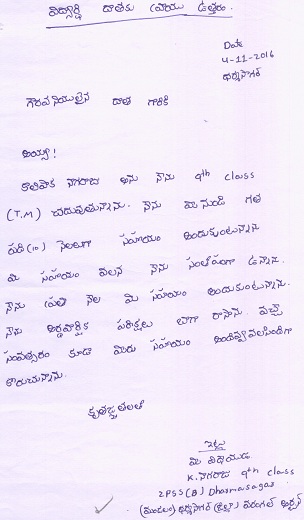 విద్యార్థి దాతకు వ్రాయు ఉత్తరం.
Date
4-11-2016
ధర్మసాగర్
గౌరవనీయులైన దాత గారికి
అయ్యా!
నాగరాజు అను నేను 9th class
(T.M) చదువుతున్నాను. నేను మీ నుండి గత
పది (10) నెలలుగా సహాయం అందుకుంటున్నాను
మీ సహాయం వలన నేను సంతోషంగా ఉన్నాను.
నేను ప్రతి నెల మీ సహాయం అందుకుంటున్నాను.
నేను పరీక్షలు బాగా రాసాను. వచ్చే
సంవత్సరం కూడా మీరు సహాయం అందివ్వవలసిందిగా
కోరుచున్నాను.
కృతజ్ఞతలతో
ఇట్లు
మీ విధేయుడు
K. నాగరాజు 9th class
ZPSS(B) Dharmasagar
(మండలం) ధర్మసాగర్ (జిల్లా) వరంగల్ అర్బన్